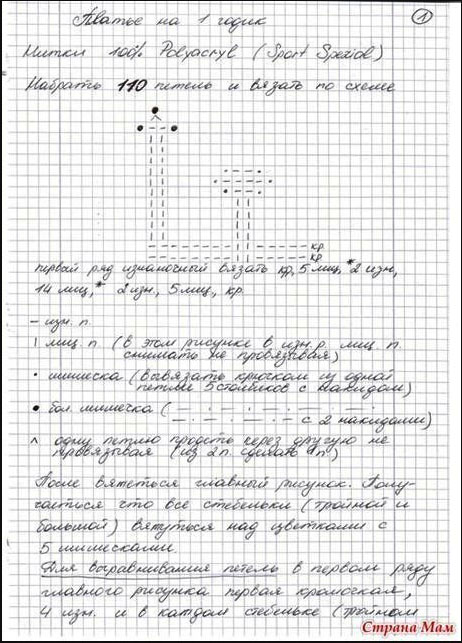 Платье на 1 годик
1
Нитки 100% Polyacryl (Sport Spezial)
Набрать 110 петель и вязать по схеме
кр.
кр
первый ряд изнаночный вязать кр, 5 лиц, * 2 изн,
14 лиц,* 2 изн, 5 лиц, кр.
– изн. п.
| лиц. п. (в этом рисунке в изн. р. лиц. п.
снимать не провязывая)
• шишеска (вывязать крючком из одной
петли 5 столбиков с накидом)
● бол. шишечка ( — . — . — . — .
— . — . — . — с 2 накидами)
ʌ одну петлю продеть через другую не
провязывая (из 2п. сделать 1п)
После вяжеться главный рисунок. Полу-
чаеться что все стебельки (тройной и
большой) вяжуться над цветками с
5 шишесками.
Для выравнивания петель в первом ряду
главного рисунка первая кромочная,
4 изн. и в каждом стебельке (тройном
Страна Мам